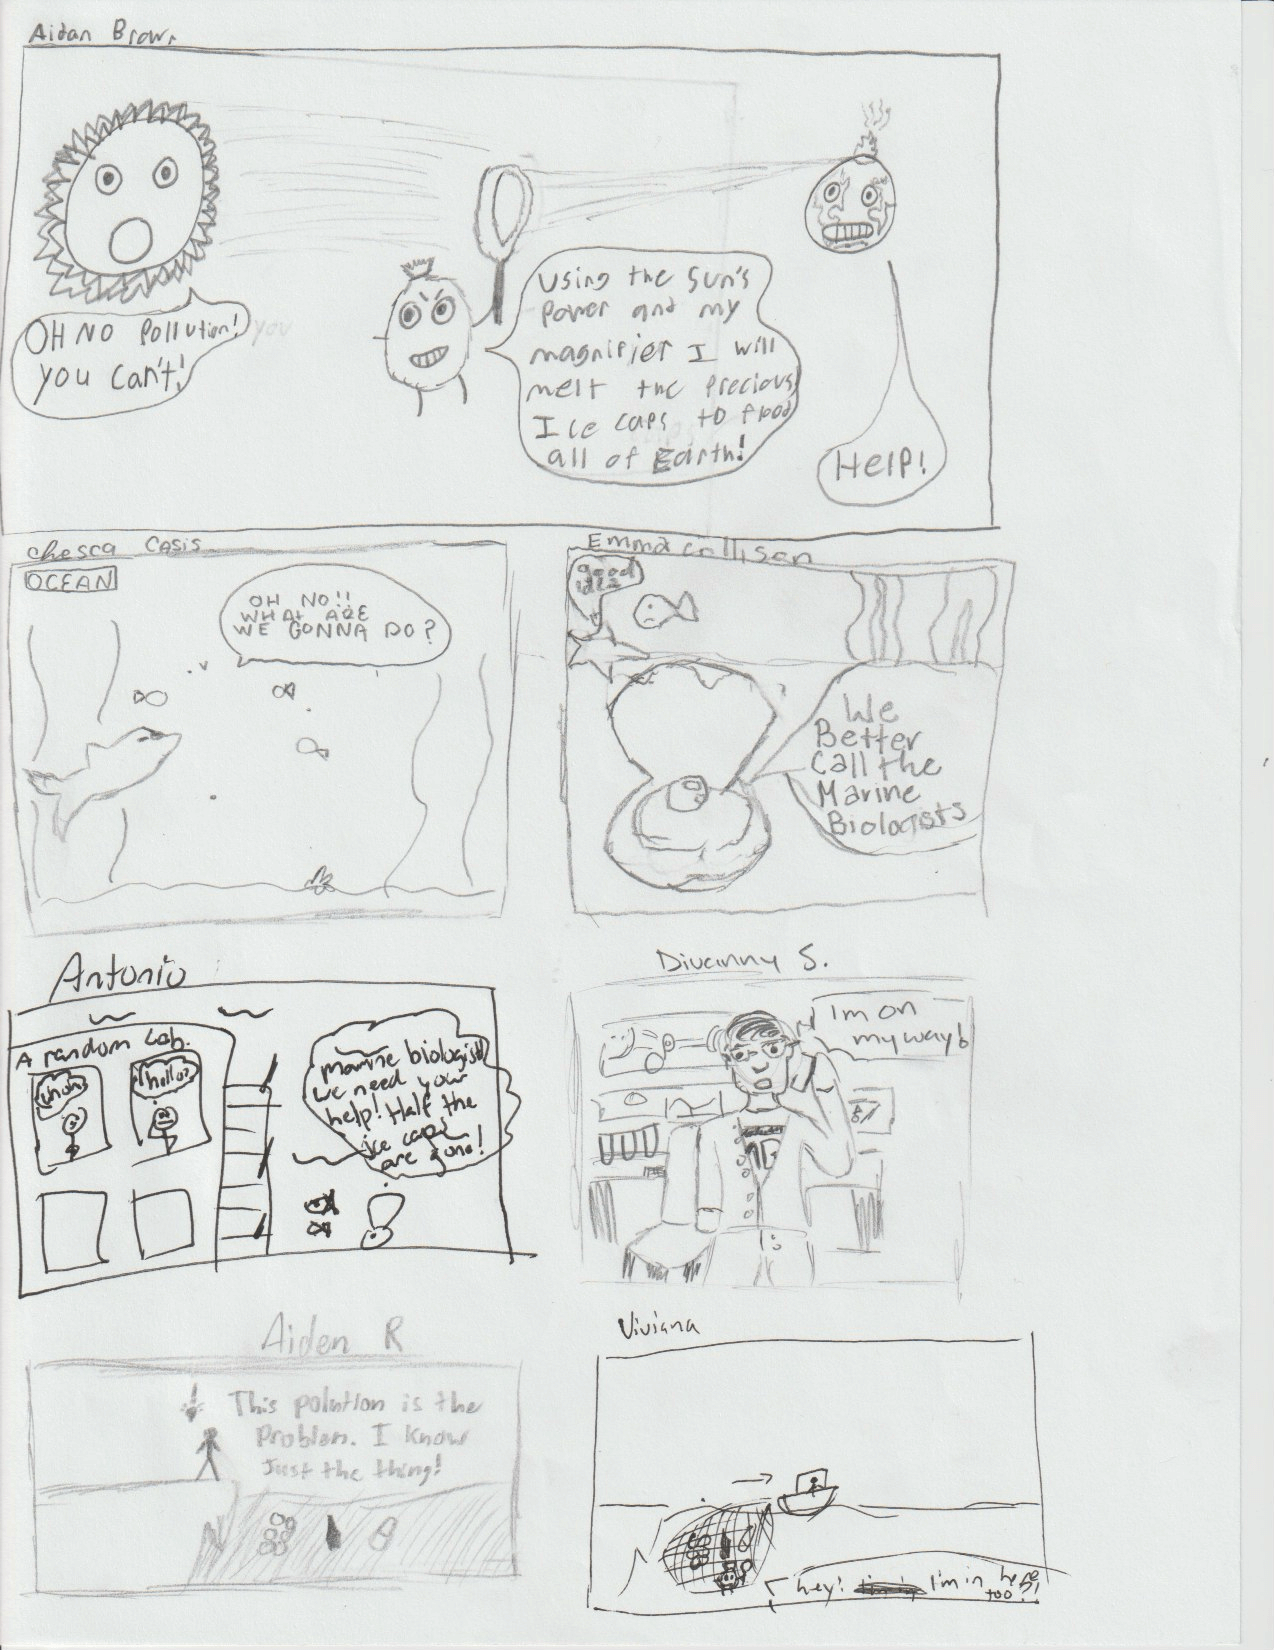 Aidan Brown
OH NO Pollution!
you can't!
you
Using the Sun's
Power and my
magnifier I will
melt the Precious
Ice caps to flood
all of Earth!
HELP!
Chesca Casis
OCEAN
OH NO!!
WHAT ARE
WE GONNA DO?
Emma Collison
good
idea
We
Better
Call the
Marine
Biologists
Antonio
A random Lab.
hello?
marine biologist
we need your
help! Half the
ice caps
are gone!
Divanny S.
I'm on
my way!
Aiden R
This polution is the
Problem. I know
Just the thing!
Viviana
hey! I'm in here
too!!